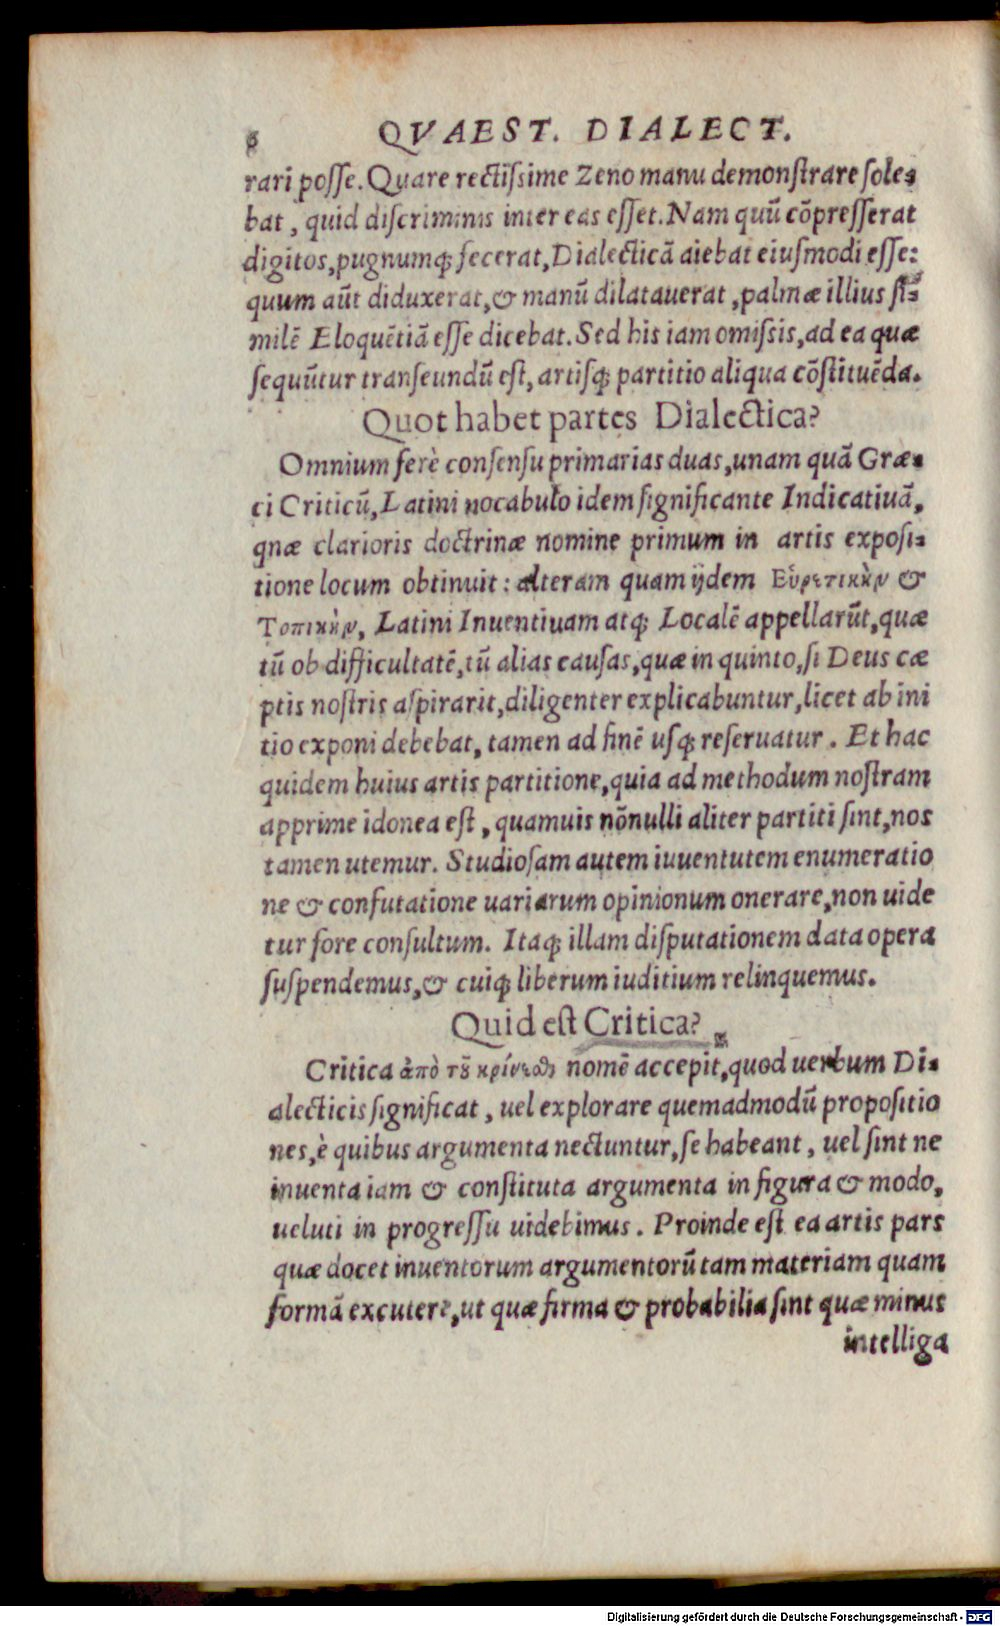 6 QVAEST. DIALECT.
rari posse. Quare rectissime Zeno manu demonstrare sole-
bat, quid discriminis inter eas esset. Nam quũ cõpresserat
digitos, pugnumq; fecerat, Dialecticã aiebat eiusmodi esse:
quum aũt diduxerat, & manũ dilatauerat, palmæ illius si-
milẽ Eloquẽtiã esse dicebat. Sed his iam omissis, ad ea quæ
sequũtur transeundũ est, artisq; partitio aliqua cõstituẽda.
Quot habet partes Dialectica?
Omnium ferè consensu primarias duas, unam quã Græ-
ci Criticũ, Latini uocabulo idem significante Indicatiuã,
quæ clarioris doctrinæ nomine primum in artis exposi-
tione locum obtinuit: alteram quam ijdem Εὑρετικὴν &
Τοπικὴν, Latini Inuentiuam atq; Localẽ appellarũt, quæ
tũ ob difficultatẽ, tũ alias causas, quæ in quinto, si Deus cæ
ptis nostris aspirarit, diligenter explicabuntur, licet ab ini
tio exponi debebat, tamen ad finẽ usq; reseruatur. Et hac
quidem huius artis partitione, quia ad methodum nostram
apprime idonea est, quamuis nõnulli aliter partiti sint, nos
tamen utemur. Studiosam autem iuuentutem enumeratio
ne & confutatione uariarum opinionum onerare, non uide
tur fore consultum. Itaq; illam disputationem data opera
suspendemus, & cuiq; liberum iuditium relinquemus.
Quid est Critica?
Critica ἀπὸ τοῦ κρίνεσθαι nomẽ accepit, quod uerbum Di-
alecticis significat, uel explorare quemadmodũ propositio
nes, è quibus argumenta nectuntur, se habeant, uel sint ne
inuenta iam & constituta argumenta in figura & modo,
ueluti in progressu uidebimus. Proinde est ea artis pars
quæ docet inuentorum argumentorũ tam materiam quam
formã excutere, ut quæ firma & probabilia sint quæ minus
intelliga
Digitalisierung gefördert durch die Deutsche Forschungsgemeinschaft - DFG